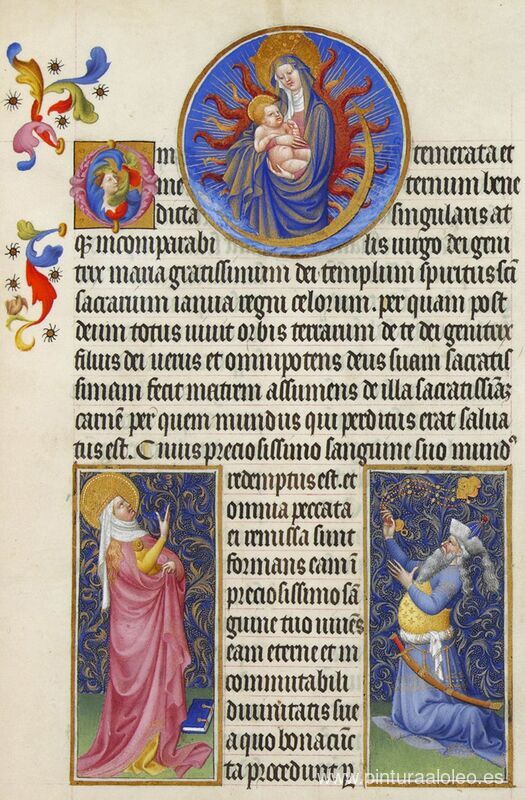 O in temerata et
in e ternum bene
dicta singularis at
qꝫ incomparabi lis uirgo dei geni
trix maria gratissimum dei templum spiritus sc̄i
sacrarium ianua regni celorum. per quam post
deum totus uiuit orbis terrarum de te dei genitrix
filius dei uerus et omnipotens deus suam sacratis
simam fecit matrem assumens de illa sacratissiāꝫ
carnē per quem mundus qui perditus erat salua
tus est. Cuius preciosissimo sanguine suo mundꝰ
redemptus est. et
omnia peccata
ei remissa sunt
formans eam ī
preciosissimo sā
guine tuo uniēs
eam eterne et in
commutabili
diuinitatis sue
a quo bona cūc
ta procedunt
www.pinturaaloleo.es